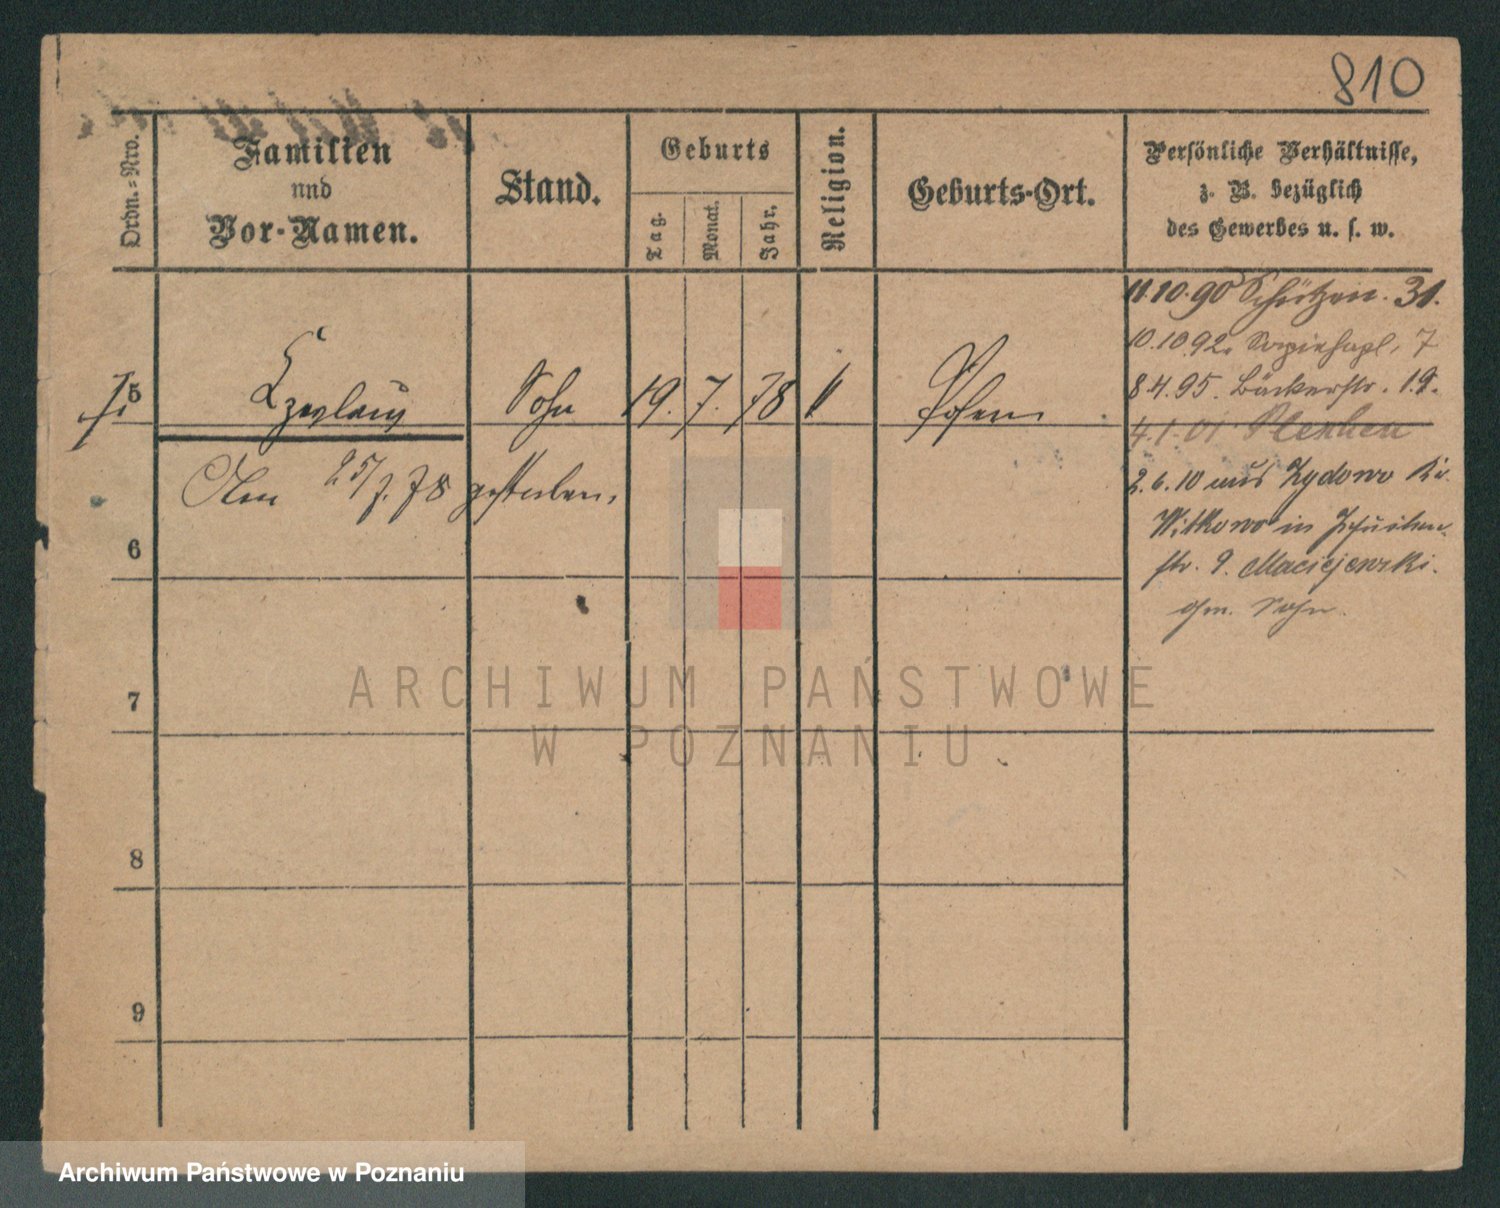 810
Ordn.=Nro.
Familien
und
Vor-Namen.
Stand.
Geburts
Tag.
Monat.
Jahr.
Religion.
Geburts-Ort.
Persönliche Verhältnisse,
z. B. bezüglich
des Gewerbes u. s. w.
5
Czeslaus
Sohn
19.
7.
78
"
Posen
Am 25/7.78 gestorben.
11.10.90 Schützen. 31.
10.10.92. Sapiehapl. 7
8.4.95. Bäckerstr. 19.
4.1.01. Pleschen
2.6.10 aus Zydowo Kr.
Witkowo in
str. 9. Maciejewski.
Sohn.
6
7
8
9
ARCHIWUM PAŃSTWOWE
W POZNANIU
Archiwum Państwowe w Poznaniu